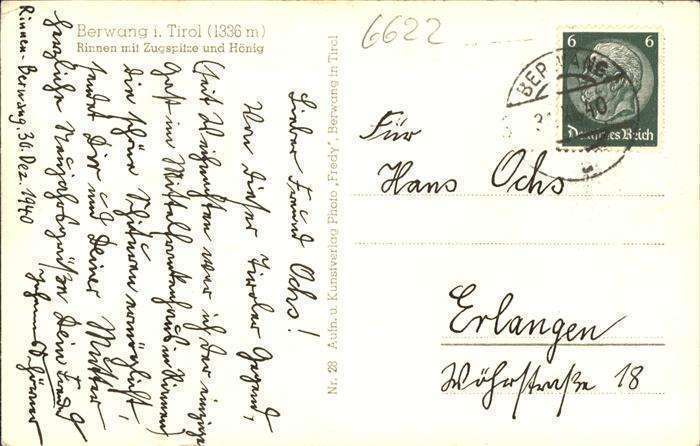 Berwang i. Tirol (1336 m)
Rinnen mit Zugspitze und Hönig
6622
6 6
Deutsches Reich
BERWANG
40
Für
Hans Ochs
Erlangen
Wöhrstraße 18
Nr. 28 Aufn. u. Kunstverlag Photo „Fredy", Berwang in Tirol
Lieber Freund Ochs!
Von dieser Tiroler Gegend,
(seit Weihnachten war ich der einzige
Gast im Mittelfrankenhaus in Rinnen)
die schöne Skituren ermöglicht,
sendet Dir und Deiner Mutter
herzliche Neujahrsgrüße Dein Freund
Rinnen-Berwang, 30. Dez. 1940